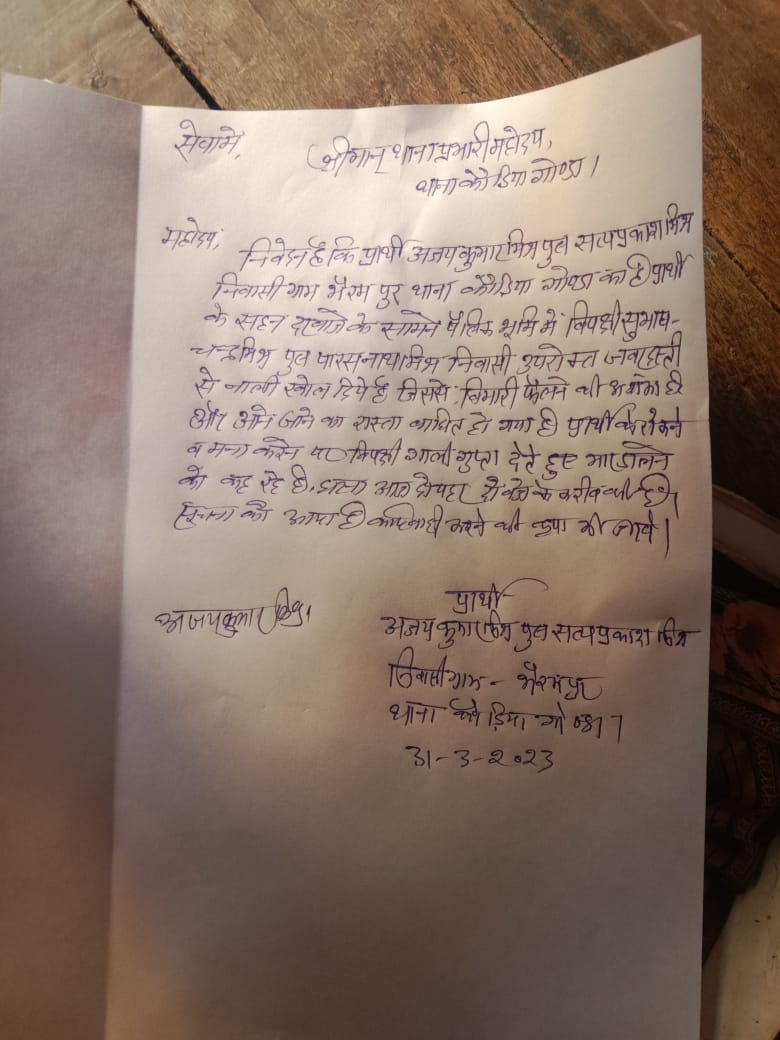 सेवामे,
श्रीमान् थाना प्रभारी महोदय,
थाना कौडिया गोण्डा।
महोदय,
निवेदन है कि प्रार्थी अजय कुमार मिश्र पुत्र सत्यप्रकाश मिश्र
निवासी ग्राम भैरमपुर थाना कौडिया गोण्डा का है प्रार्थी
के सहन दरवाजे के सामने पैत्रिक भूमि में विपक्षी सुभाष-
चन्द्र मिश्र पुत्र पारसनाथ मिश्र निवासी उपरोक्त जबरदस्ती
से नाली खोल दिये है जिससे बिमारी फैलने की आशंका है
और आने जाने का रास्ता बाधित हो गया है प्रार्थी के रोकने
व मना करने पर विपक्षी गाली गुप्ता देते हुए मार डालने
को कह रहे है, घटना आज दोपहर दो बजे के करीब की है।
सूचना को आया है कार्यवाही करने की कृपा की जाये।
प्रार्थी
अजय कुमार मिश्र।
अजय कुमार मिश्र पुत्र सत्यप्रकाश मिश्र
निवासी ग्राम - भैरमपुर
थाना कौडिया गोण्डा।
31-3-2023